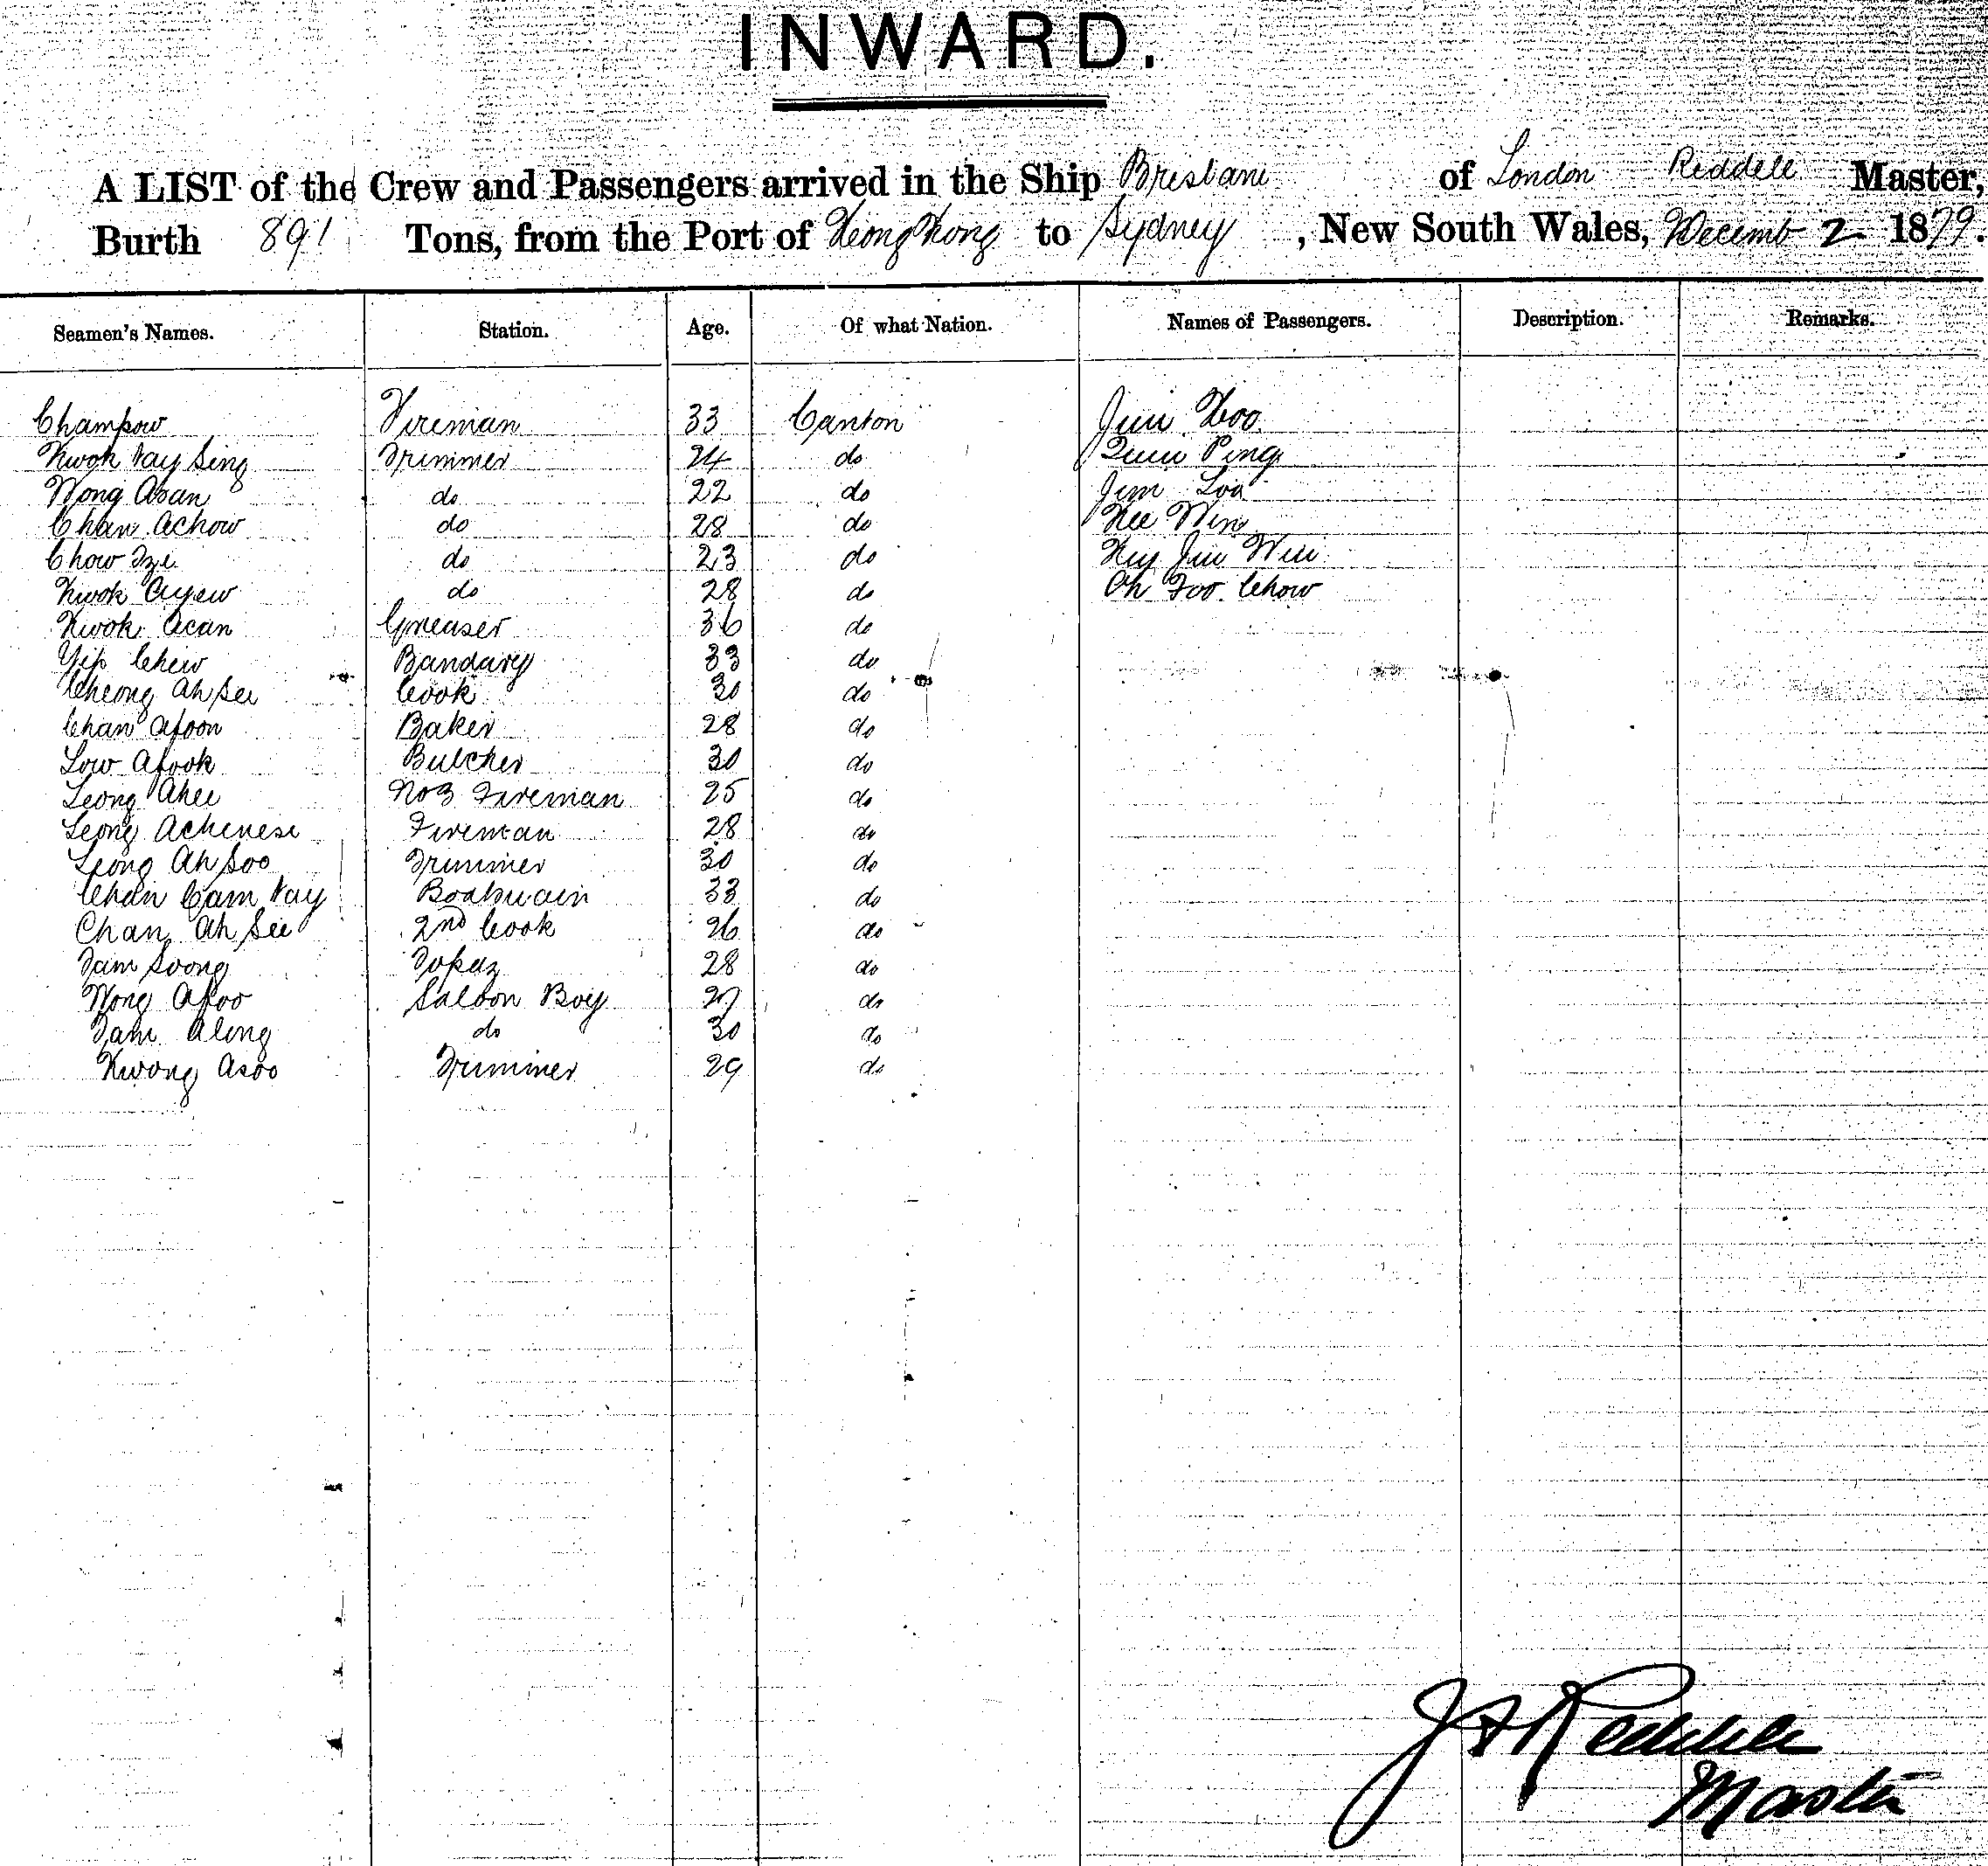 INWARD.
A LIST of the Crew and Passengers arrived in the Ship Brisbane of London Reddell Master,
Burth 891 Tons, from the Port of Hong Kong to Sydney, New South Wales, Decemb 2 1879.
Seamen's Names. Station. Age. Of what Nation. Names of Passengers. Description. Remarks.
Champow Fireman 33 Canton Jim Hoo
Kwok Kay Sing Trimmer 24 do Ping
Wong Asan do 22 do Jim Loa
Chan Achow do 28 do Kee Win
Chow Tze do 23 do
Kwok Ayew do 28 do Oh Foo Chow
Kwok Acan Greaser 36 do
Yip Chew Bandary 33 do
Cheong Ah See Cook 30 do
Chan Afoon Baker 28 do
Low Afook Butcher 30 do
Leong Ahee No 3 Fireman 25 do
Leong Fireman 28 do
Leong Ah Soo Trimmer 30 do
Chan Cam Kay Boatswain 33 do
Chan Ah See 2nd Cook 26 do
Tam Soong Topaz 28 do
Wong Afoo Saloon Boy 27 do
Tam Along do 30 do
Kwong Asoo Trimmer 29 do
Reddell
Master